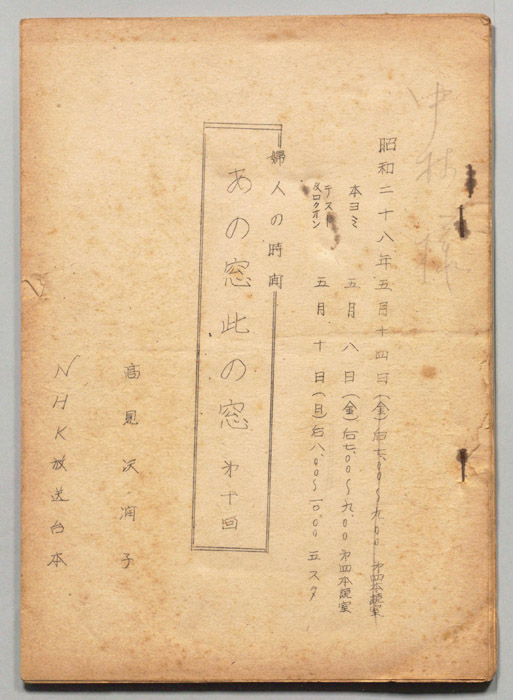 中村様
昭和二十八年五月十四日(金)后七.〇〇〜九.〇〇 第四本読室
本ヨミ 五月八日(金)后七.〇〇〜九.〇〇 第四本読室
テスト及ロクオン 五月十日(日)后八.〇〇〜一〇.〇〇 五スタ
婦人の時間
あの窓此の窓 第十回
高見沢潤子
NHK放送台本